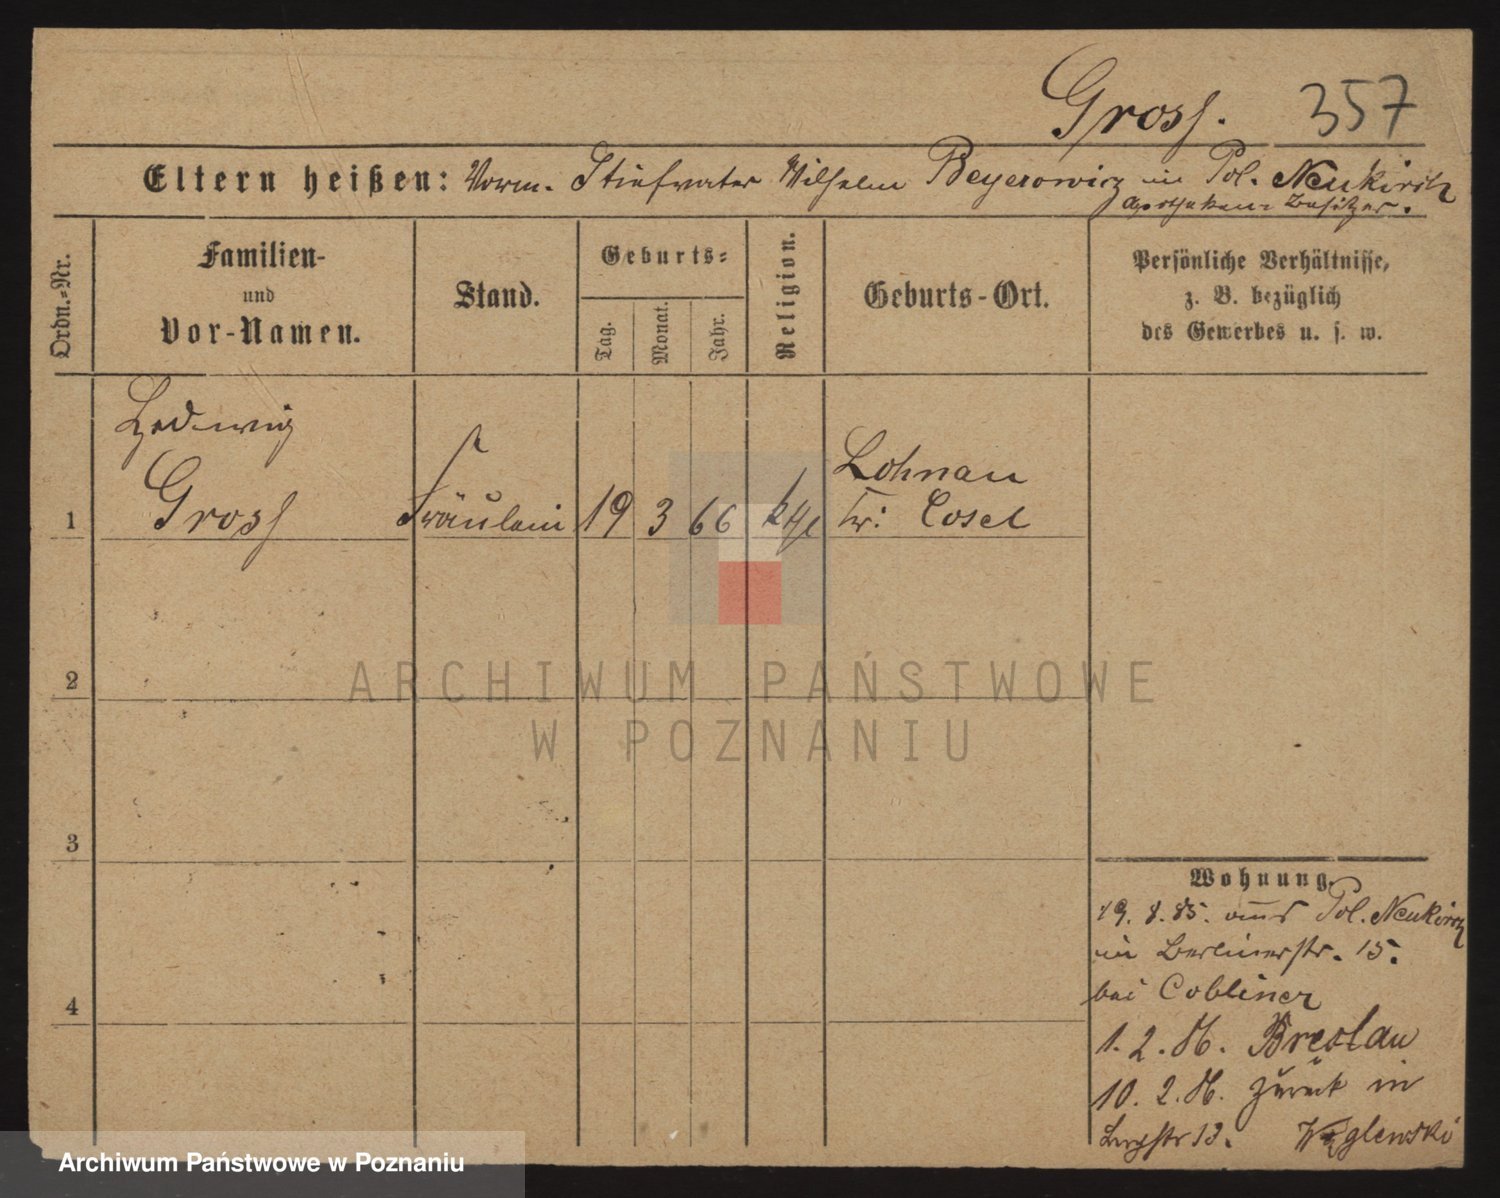 Gross.
357
Eltern heißen: Vorm. Stiefvater Wilhelm Beyerowicz in Pol. Neukirch
Apotheken-Besitzer.
Ordn.-Nr.
Familien-
und
Vor-Namen.
Stand.
Geburts-
Tag.
Monat.
Jahr.
Religion.
Geburts-Ort.
Persönliche Verhältnisse,
z. B. bezüglich
des Gewerbes u. s. w.
Hedwig
Gross
1
Fräulein
19
3
66
kth
Lohnau
Kr: Cosel
2
3
4
Wohnung.
19. 8. 85. aus Pol. Neukirch
in Berlinerstr. 15.
bei Cobliner
1. 2. 86. Breslau
10. 2. 86. zurück in
Bergstr 13.
ARCHIWUM PAŃSTWOWE
W POZNANIU
Archiwum Państwowe w Poznaniu